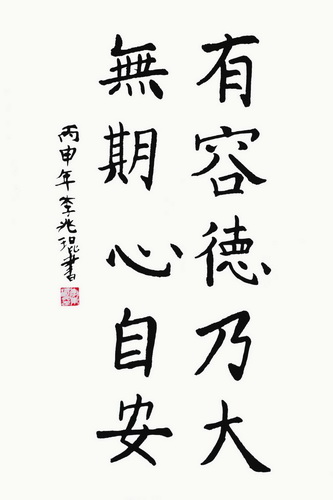 有容德乃大
無期心自安
丙申年李兆琨書